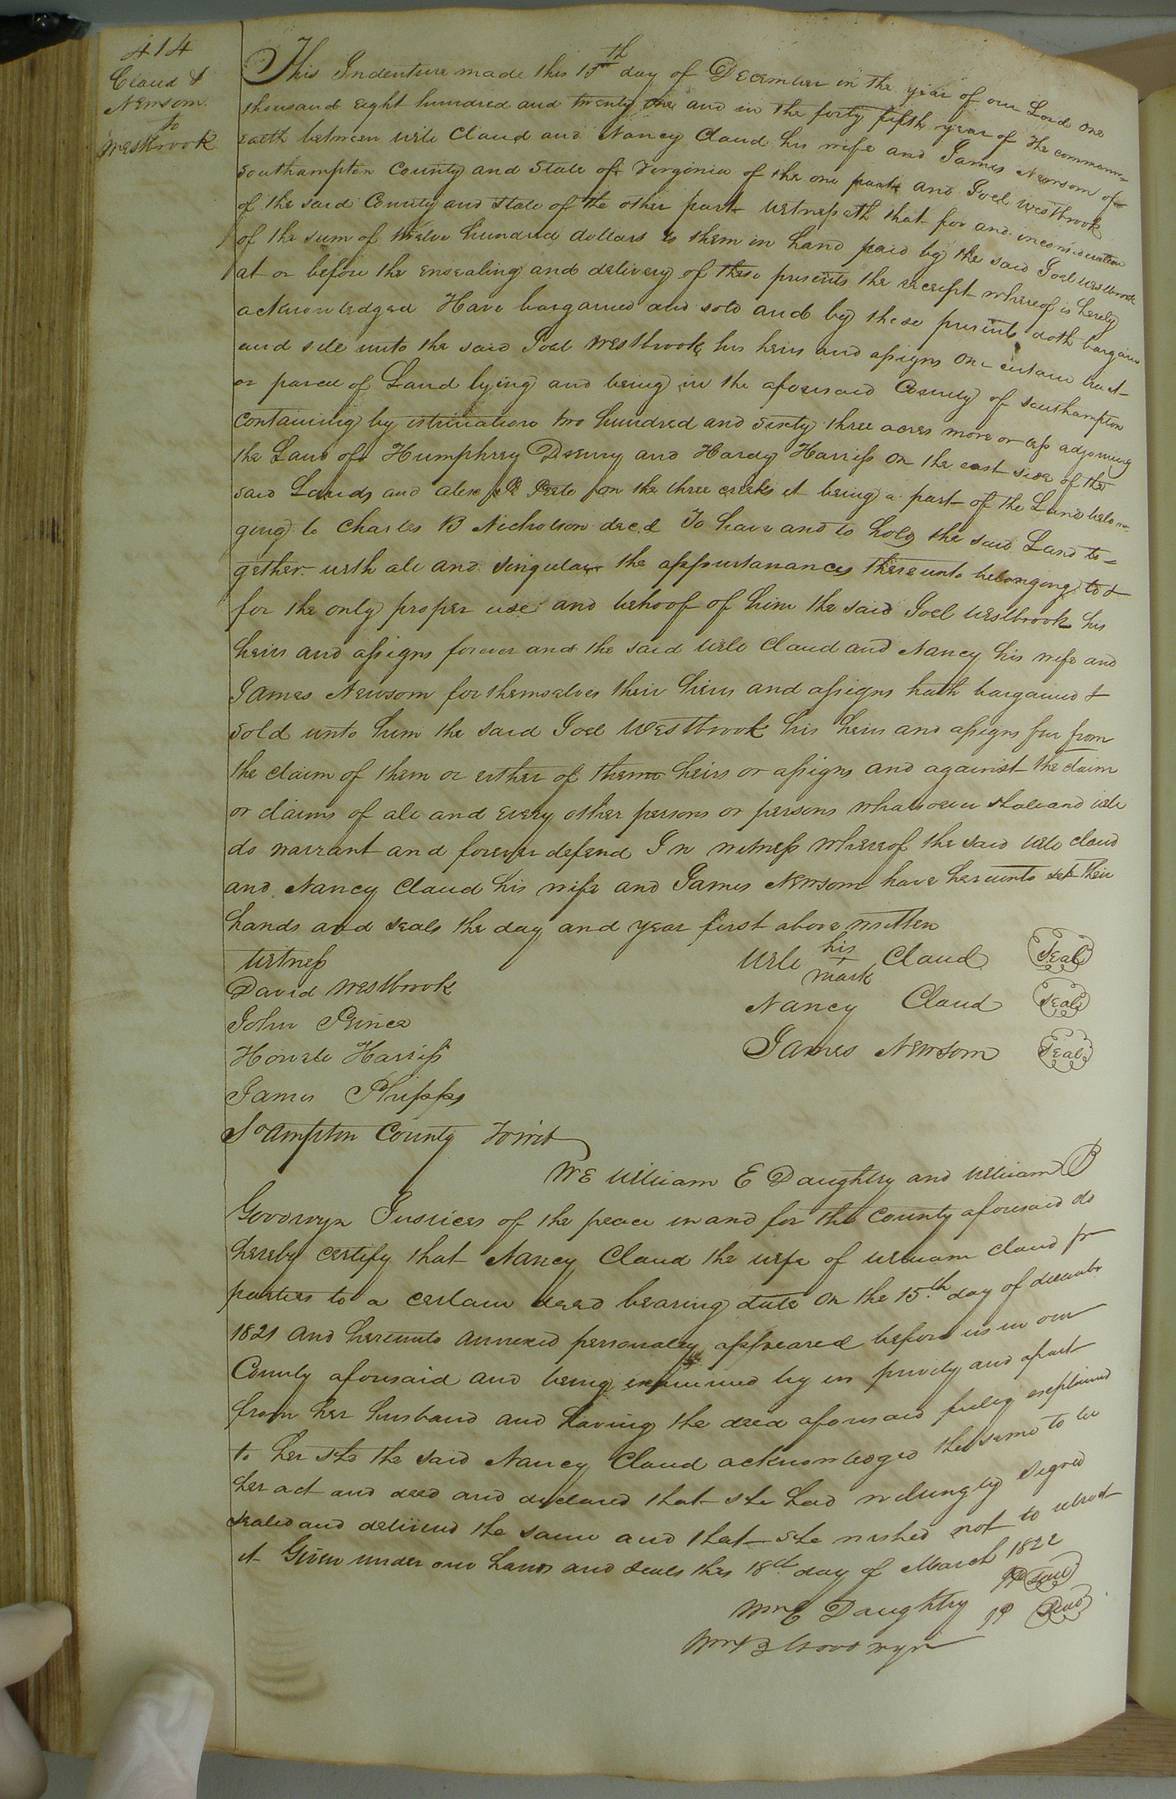 414
Claud &
Newsom
to
Westbrook
This Indenture made this 15th day of December in the year of our Lord one
thousand Eight hundred and twenty one and in the forty fifth year of the commonw-
ealth between Will Claud and Nancy Claud his wife and James Newsom of
Southampton County and State of Virginia of the one part and Joel Westbrook
of the said County and State of the other part Witnesseth that for and inconsideration
of the sum of twelve hundred dollars to them in hand paid by the said Joel Westbrook
at or before the ensealing and delivery of these presents the receipt whereof is hereby
acknowledged Have bargained and sold and by these presents doth bargain
and sell unto the said Joel Westbrook his heirs and assigns one certain tract
or parcel of Land lying and being in the aforesaid County of Southampton
Containing by estimation two hundred and sixty three acres more or less adjoining
the Land of Humphrey Drewry and Hardy Harriss on the east side of the
said Lands and Alex P Peete on the three creeks it being a part of the Land belon-
ging to Charles B Nicholson decd To have and to hold the said Land to-
gether with all and singular the appurtanances thereunto belonging to &
for the only proper use and behoof of him the said Joel Westbrook his
heirs and assigns forever and the said Will Claud and Nancy his wife and
James Newsom for themselves their heirs and assigns hath bargained &
sold unto him the said Joel Westbrook his heirs and assigns free from
the claim of them or either of them heirs or assigns and against the claim
or claims of all and every other persons or persons whatsoever shall and will
do warrant and forever defend In witness whereof the said Will Claud
and Nancy Claud his wife and James Newsom have hereunto set their
hands and seals the day and year first above written
Witness
Will his mark Claud Seal
David Westbrook
Nancy Claud Seal
John Prince
James Newsom Seal
Howell Harriss
James Phipps
So Ampton County Towit
We William E Daughtry and William B
Goodwyn Justices of the peace in and for the County aforesaid do
hereby certify that Nancy Claud the wife of William Claud
parties to a certain deed bearing date on the 15th day of decembr
1821 and hereunto annexed personally appeared before us in our
County aforesaid and being examined by us privily and apart
from her husband and having the deed aforesaid fully explained
to her she the said Nancy Claud acknowledged the same to be
her act and deed and declared that she had willingly signed
sealed and deliverd the same and that she wished not to retract
it Given under our hands and seals this 18th day of March 1822
Wm E Daughtry JP Seal
Wm B Goodwyn JP Seal